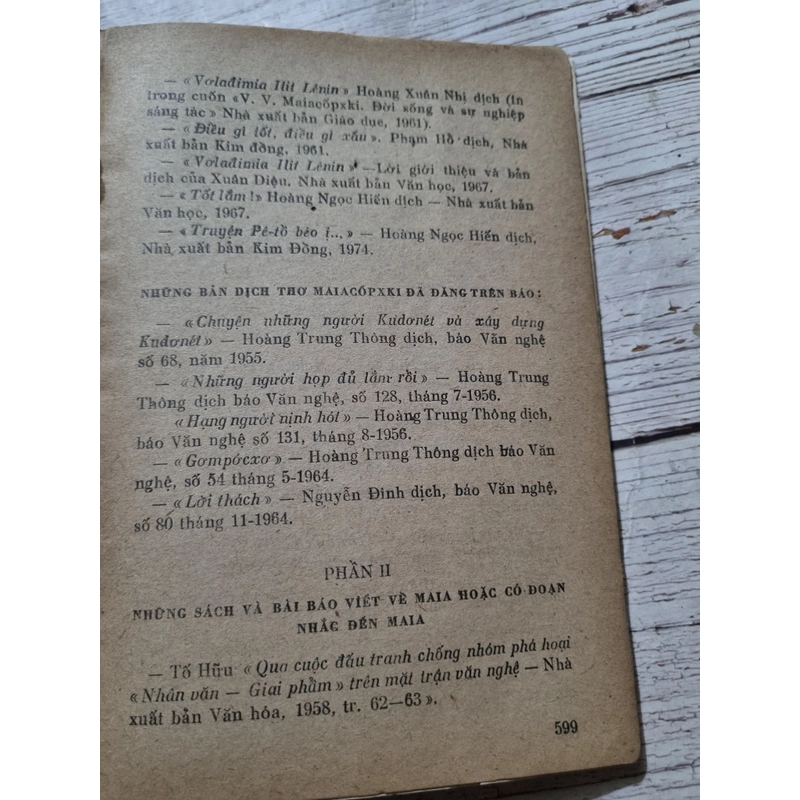 — « Vơlađimia Ilit Lênin » Hoàng Xuân Nhị dịch (in
trong cuốn «V. V. Maiacốpxki. Đời sống và sự nghiệp
sáng tác » Nhà xuất bản Giáo dục, 1961).
— « Điều gì tốt, điều gì xấu ». Phạm Hổ dịch, Nhà
xuất bản Kim đồng, 1961.
— « Vơlađimia Ilit Lênin » —Lời giới thiệu và bản
dịch của Xuân Diệu. Nhà xuất bản Văn học, 1967.
— « Tốt lắm !» Hoàng Ngọc Hiến dịch — Nhà xuất bản
Văn học, 1967.
— « Truyện Pê-tô béo ị... » — Hoàng Ngọc Hiến dịch,
Nhà xuất bản Kim Đồng, 1974.
NHỮNG BẢN DỊCH THƠ MAIACỐPXKI ĐÃ ĐĂNG TRÊN BÁO :
— « Chuyện những người Kudơnét và xây dựng
Kudơnét » — Hoàng Trung Thông dịch, báo Văn nghệ
số 68, năm 1955.
— « Những người họp đủ lắm rồi » — Hoàng Trung
Thông dịch báo Văn nghệ, số 128, tháng 7-1956.
« Hạng người nịnh hót » — Hoàng Trung Thông dịch,
báo Văn nghệ số 131, tháng 8-1956.
— « Gompócxơ » — Hoàng Trung Thông dịch báo Văn
nghệ, số 54 tháng 5-1964.
— « Lời thách » — Nguyễn Đình dịch, báo Văn nghệ,
số 80 tháng 11-1964.
PHẦN II
NHỮNG SÁCH VÀ BÀI BÁO VIẾT VỀ MAIA HOẶC CÓ ĐOẠN
NHẮC ĐẾN MAIA
— Tố Hữu « Qua cuộc đấu tranh chống nhóm phá hoại
« Nhân văn — Giai phẩm » trên mặt trận văn nghệ — Nhà
xuất bản Văn hóa, 1958, tr. 62—63 ».
599